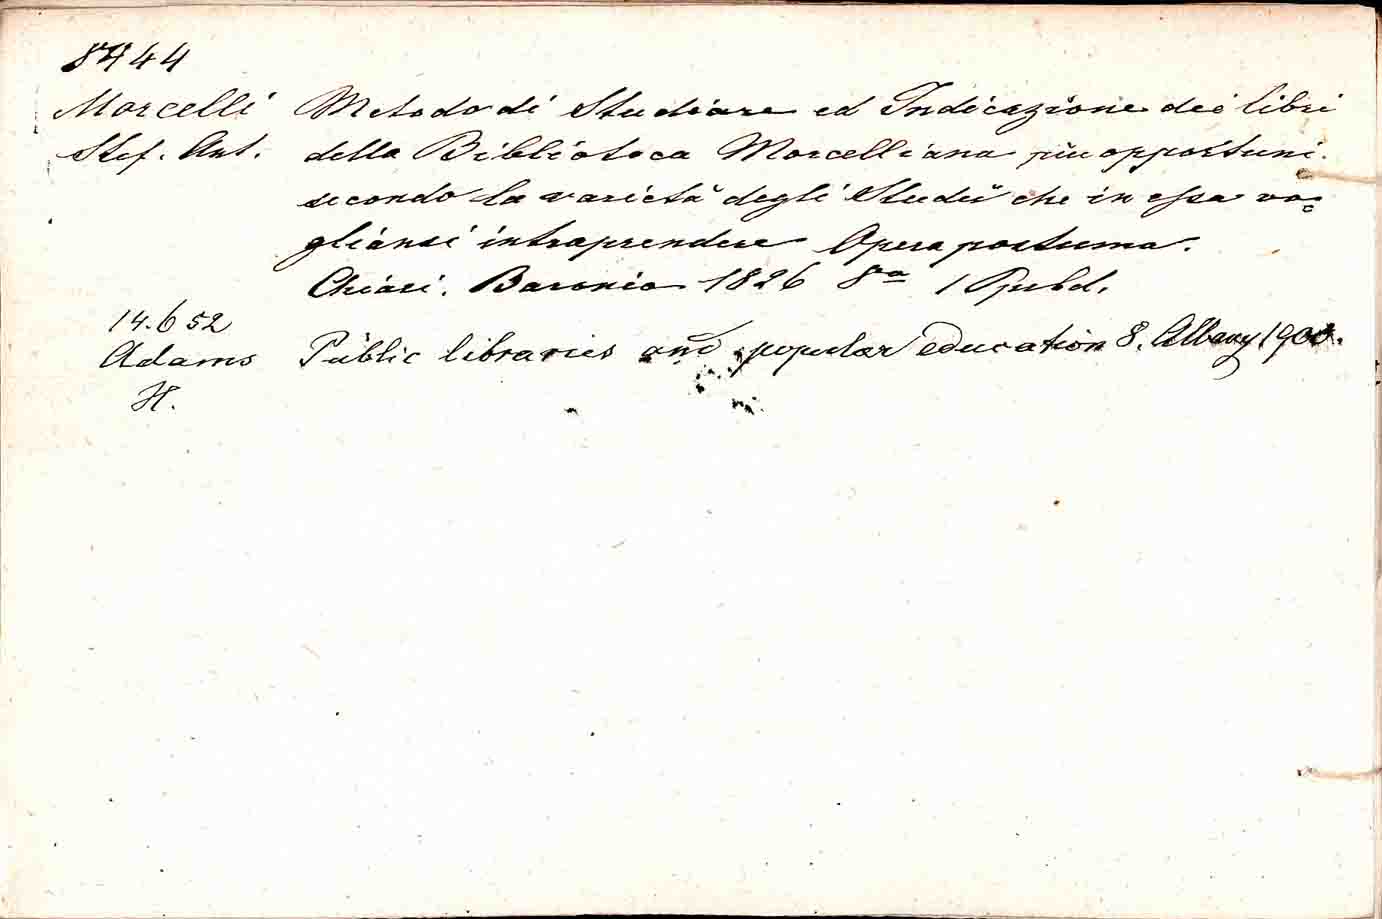 8744
Morcelli Metodo di Studiare ed Indicazione dei libri
Stef. Ant. della Biblioteca Morcelliana più opportuni
secondo la varietà degli Studii che in essa vo=
gliansi intraprendere Opera postuma.
Chiari. Baronio 1826 8vo 1 Ppbd.
14.652
Adams Public libraries and popular education 8. Albany 1900.
H.